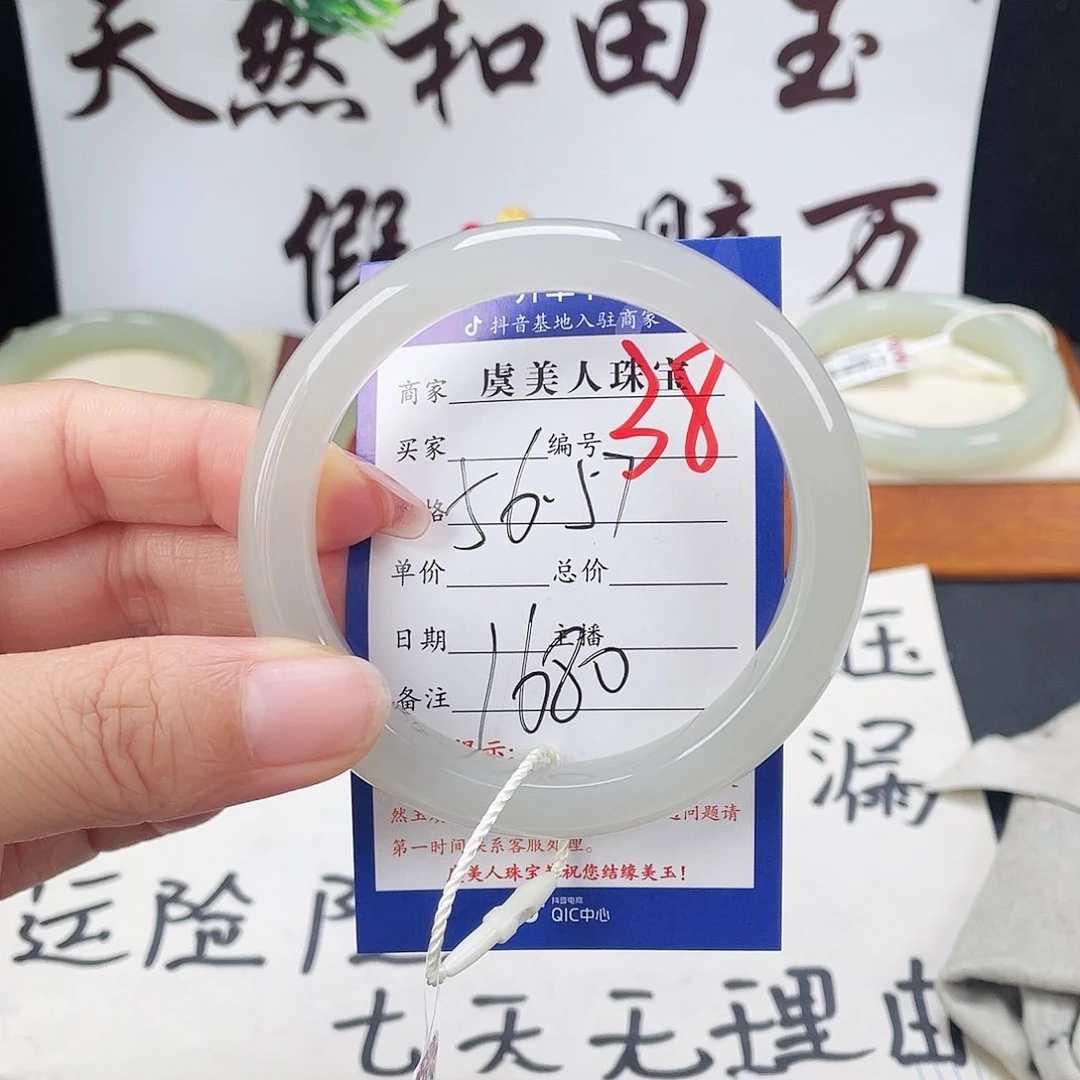 天然和田玉
假 赔万
抖音基地入驻商家
商家 虞美人珠宝
38
买家 编号
格 56-57
单价 总价
日期 主播
备注 1680
提示:
问题请
第一时间联系客服处理。
虞美人珠宝 祝您结缘美玉!
抖音电商
QIC中心
压
漏
运险
七天无理由